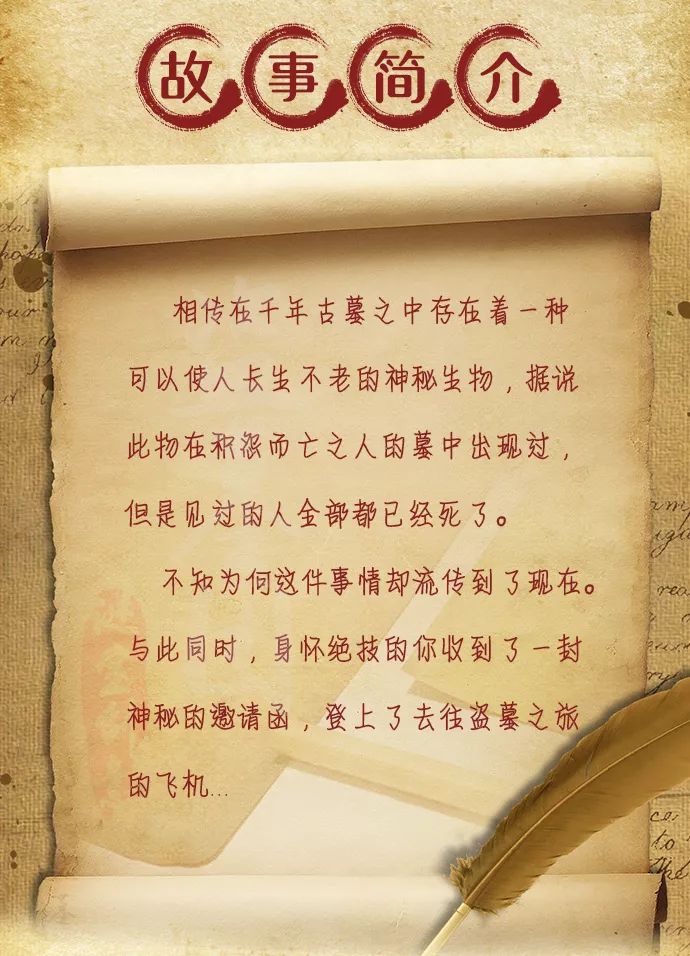 故事简介
相传在千年古墓之中存在着一种
可以使人长生不老的神秘生物，据说
此物在积怨而亡之人的墓中出现过，
但是见过的人全部都已经死了。
不知为何这件事情却流传到了现在。
与此同时，身怀绝技的你收到了一封
神秘的邀请函，登上了去往盗墓之旅
的飞机...